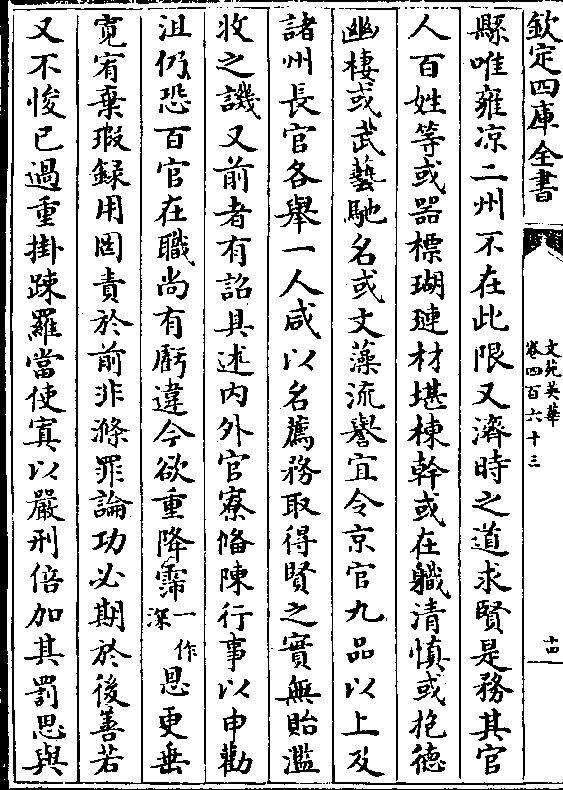 欽定四庫全書
文苑英華
卷四百六十三
十四
縣唯雍凉二州不在此限又濟時之道求賢是務其官
人百姓等或器標瑚璉材堪棟幹或在職清慎或抱德
幽棲或武藝馳名或文藻流譽宜令京官九品以上及
諸州長官各舉一人咸以名薦務取得賢之實無貽濫
收之譏又前者有詔具述内外官寮俻陳行事以申勸
沮仍恐百官在職尚有虧違今欲重降霈一作深思更垂
寛宥棄瑕録用固責於前非滌罪論功必期於後善若
又不悛已過重掛踈羅當使寘以嚴刑倍加其罰思與